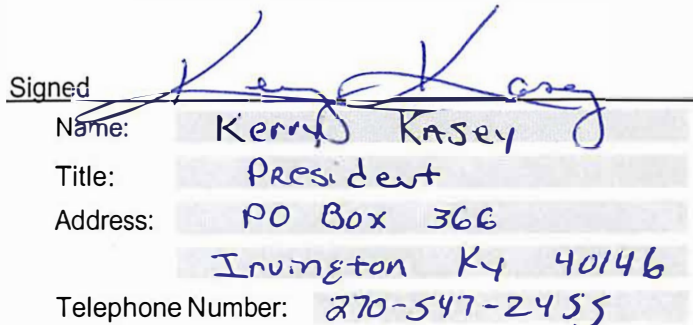 Signed Kerry Kasey
Name: Kerry Kasey
Title: President
Address: PO Box 366
Irvington Ky 40146
Telephone Number: 270-547-2455